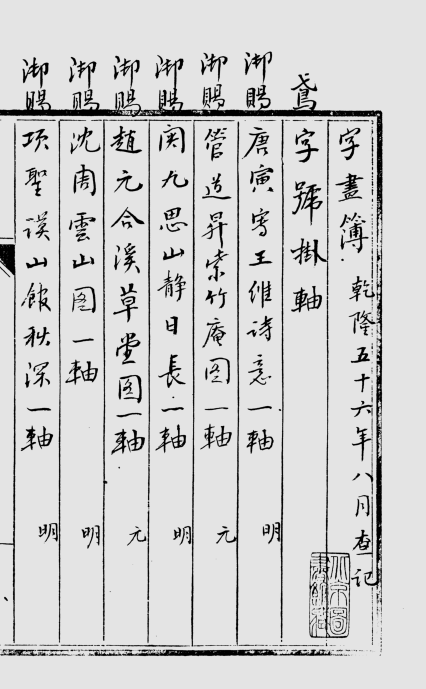 字畫簿 乾隆五十六年八月查記
鳶字號掛軸
御賜 唐寅寫王維詩意一軸 明
御賜 管道昇紫竹庵图一軸 元
御賜 関九思山静日長一軸 明
御賜 趙元合溪草堂图一軸 元
御賜 沈周雲山图一軸 明
御賜 項聖謨山館秋深一軸 明
北京圖書館藏